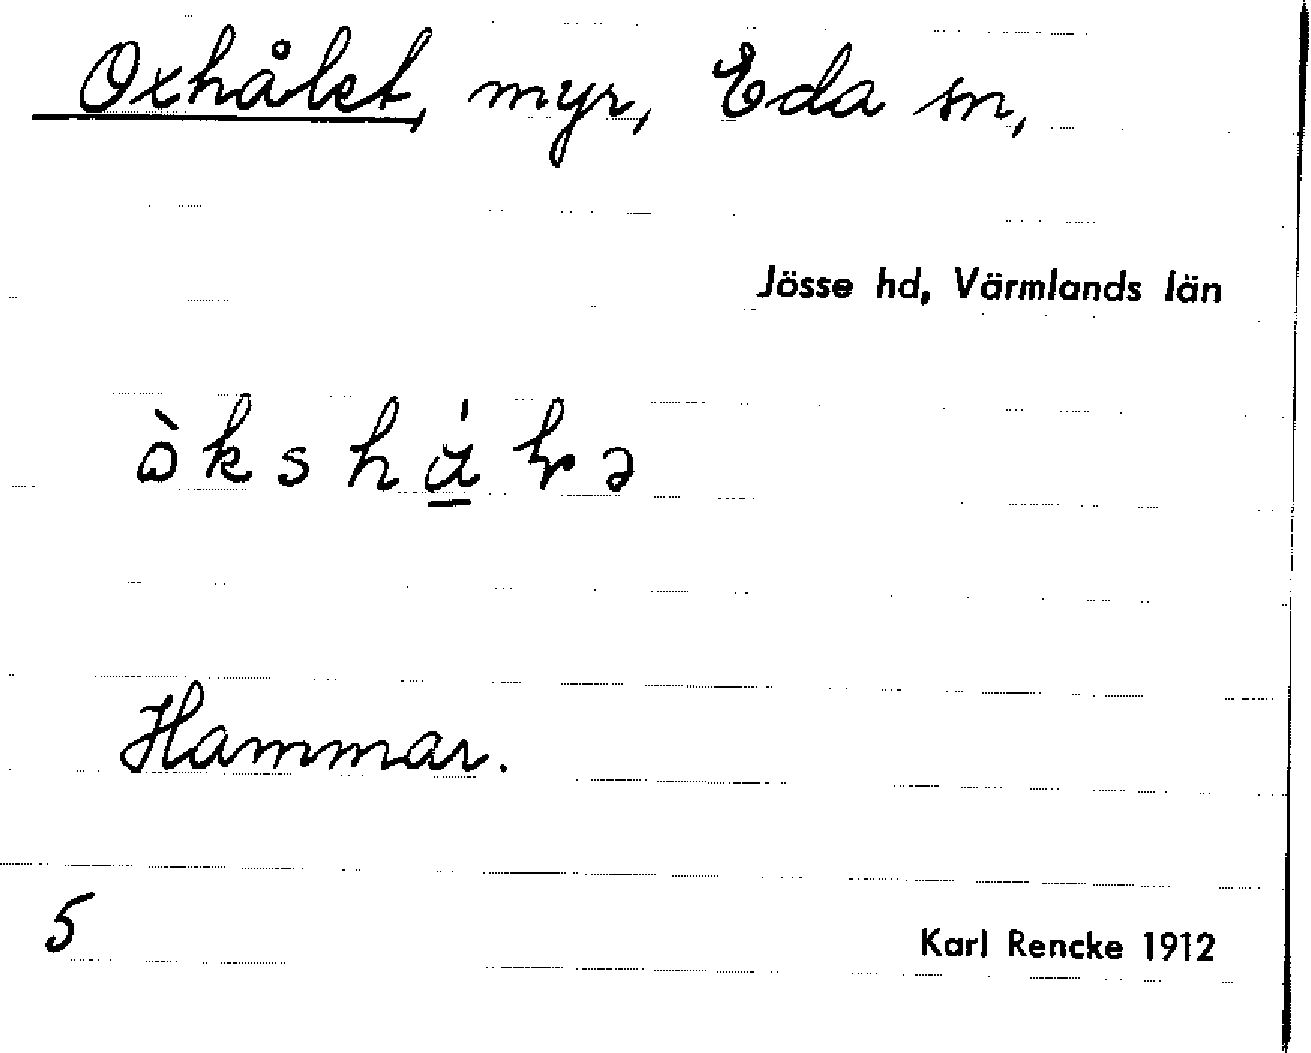 Oxhålet, myr, Eda sn,
Jösse hd, Värmlands län
Hammar.
5
Karl Rencke 1912